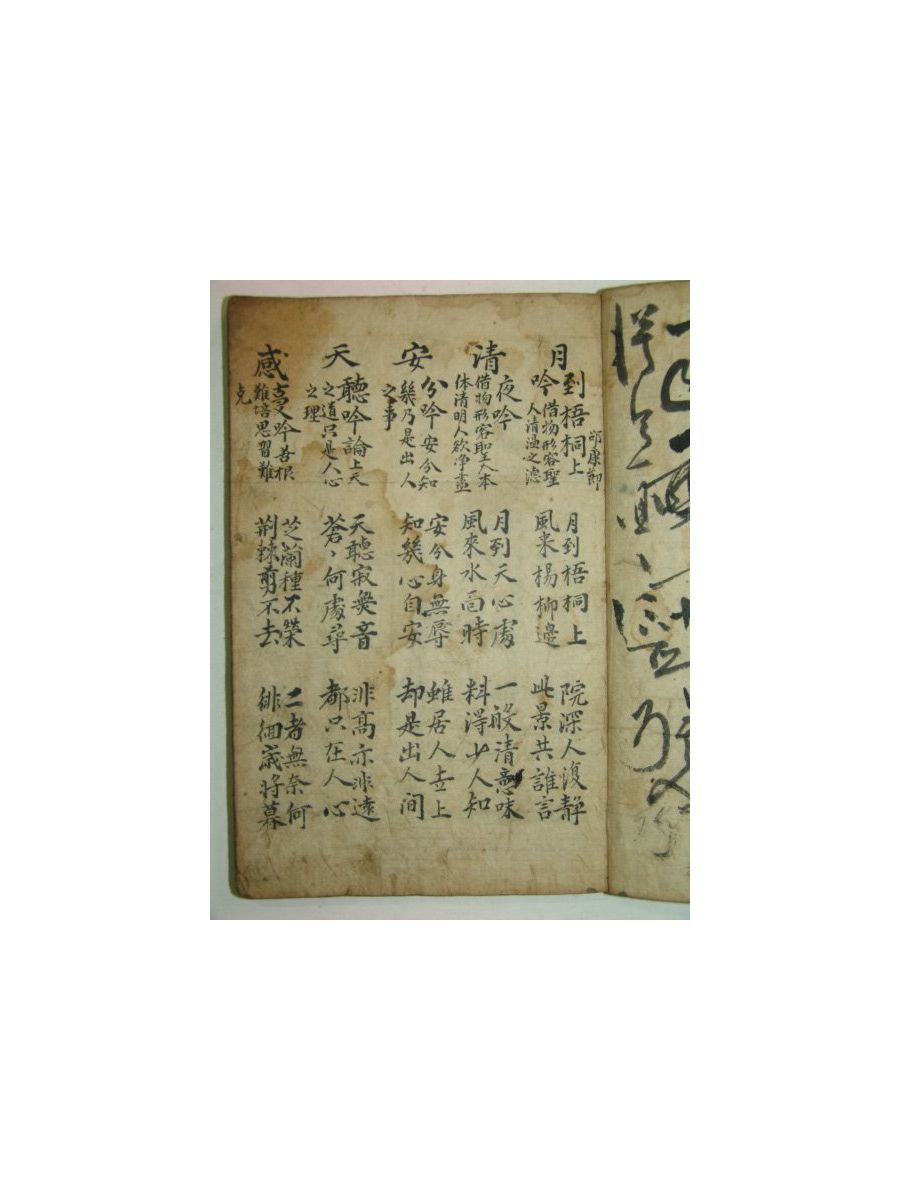 邵康節
月到梧桐上
吟
借物形容聖
人清溫之德
月到梧桐上
風来楊柳邊
院深人復靜
此景共誰言
清夜吟
借物形容聖人本
体清明人欲净盡
月到天心處
風來水面時
一般清意味
料得少人知
安分吟
安分知
幾乃是出人
之事
安分身無辱
知幾心自安
雖居人世上
却是出人间
天聽吟
論上天
之道只是人心
之理
天聽寂無音
蒼〻何處尋
非高亦非遠
都只在人心
感吟
善根
難培思習難
克
芝蘭種不榮
荆棘剪不去
二者無奈何
徘徊歲將暮